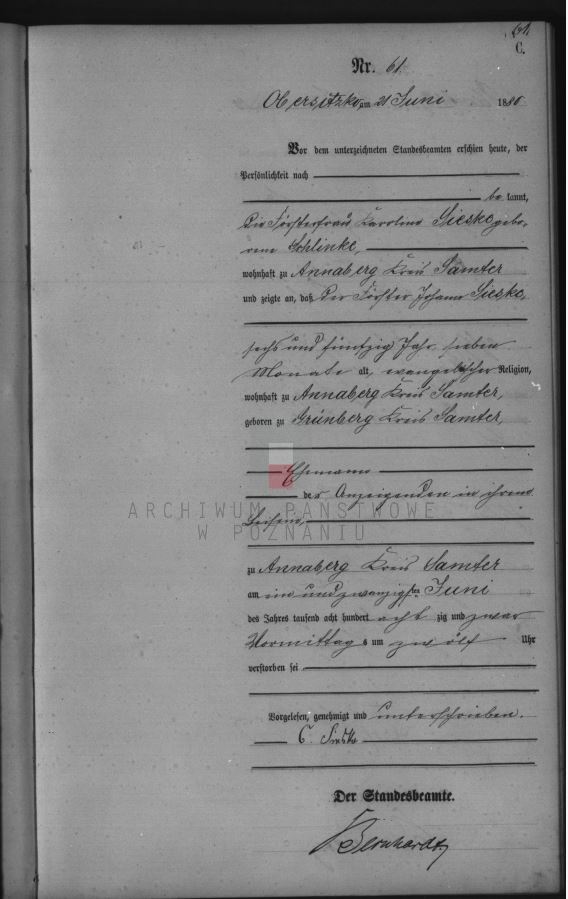 61.
C.
Nr. 61.
Obersitzko am 21 Juni 1880
Vor dem unterzeichneten Standesbeamten erschien heute, der
Persönlichkeit nach
be kannt,
die Försterfrau Karoline Sieske gebo,
rene Schlinke,
wohnhaft zu Annaberg Kreis Samter
und zeigte an, daß der Förster Johann Sieske,
sechs und fünfzig Jahr sieben
Monate alt, evangelischer Religion,
wohnhaft zu Annaberg Kreis Samter,
geboren zu Grünberg Kreis Samter,
Ehemann
der Anzeigenden in ihrem
Beisein,
ARCHIWUM PAŃSTWOWE
W POZNANIU
zu Annaberg Kreis Samter
am ein und zwanzigsten Juni
des Jahres tausend acht hundert acht zig und zwar
Vormittag s um zwölf Uhr
verstorben sei
Vorgelesen, genehmigt und unterschrieben.
C. Sieske
Der Standesbeamte.
Bernhardt